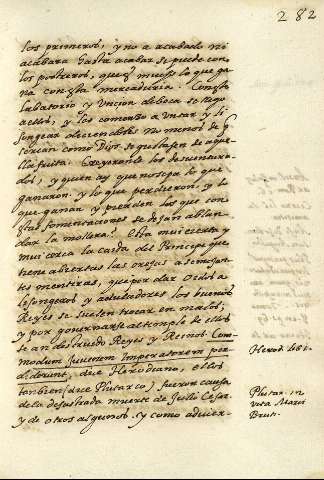 282
los primeros, y no a acabado ni
acabara hasta acabar se puede con
los postreros, que es mucho lo que ga
na con esta mercaderia. Con este
labatorio y uncion de boca se llego
a ellos, y les comenzo a untar y li
songear diciendoles no menos de q̃
serian como Dios si gustasen de aque
lla fruta. Creyeronle los desventura-
dos, y quien ay que no sepa lo que
ganaron, y lo que perdieron, y lo
que ganan y pierden los que con
las fomentaciones se dejan ablan
dar la mollera? Esta muy cierta y
muy cerca la caida del Principe que
tiene abiertas las orejas a semejan
tes mentiras, que por dar oidos a
lisongeros, y aduladores los buenos
Reyes se suelen trocar en malos,
y por governarse al temple de ellos
se an destruido Reyes y Reinos. Com
modum Imperatorem per
diderunt, dice Herodiano, ellos
tanbien (dice Plutarco) fueron causa
de la desastrada muerte de Julio Cesar
y de otros algunos. y como advier-
Herod. lib. 1.
Plutar. in
vita Marci
Bruti.